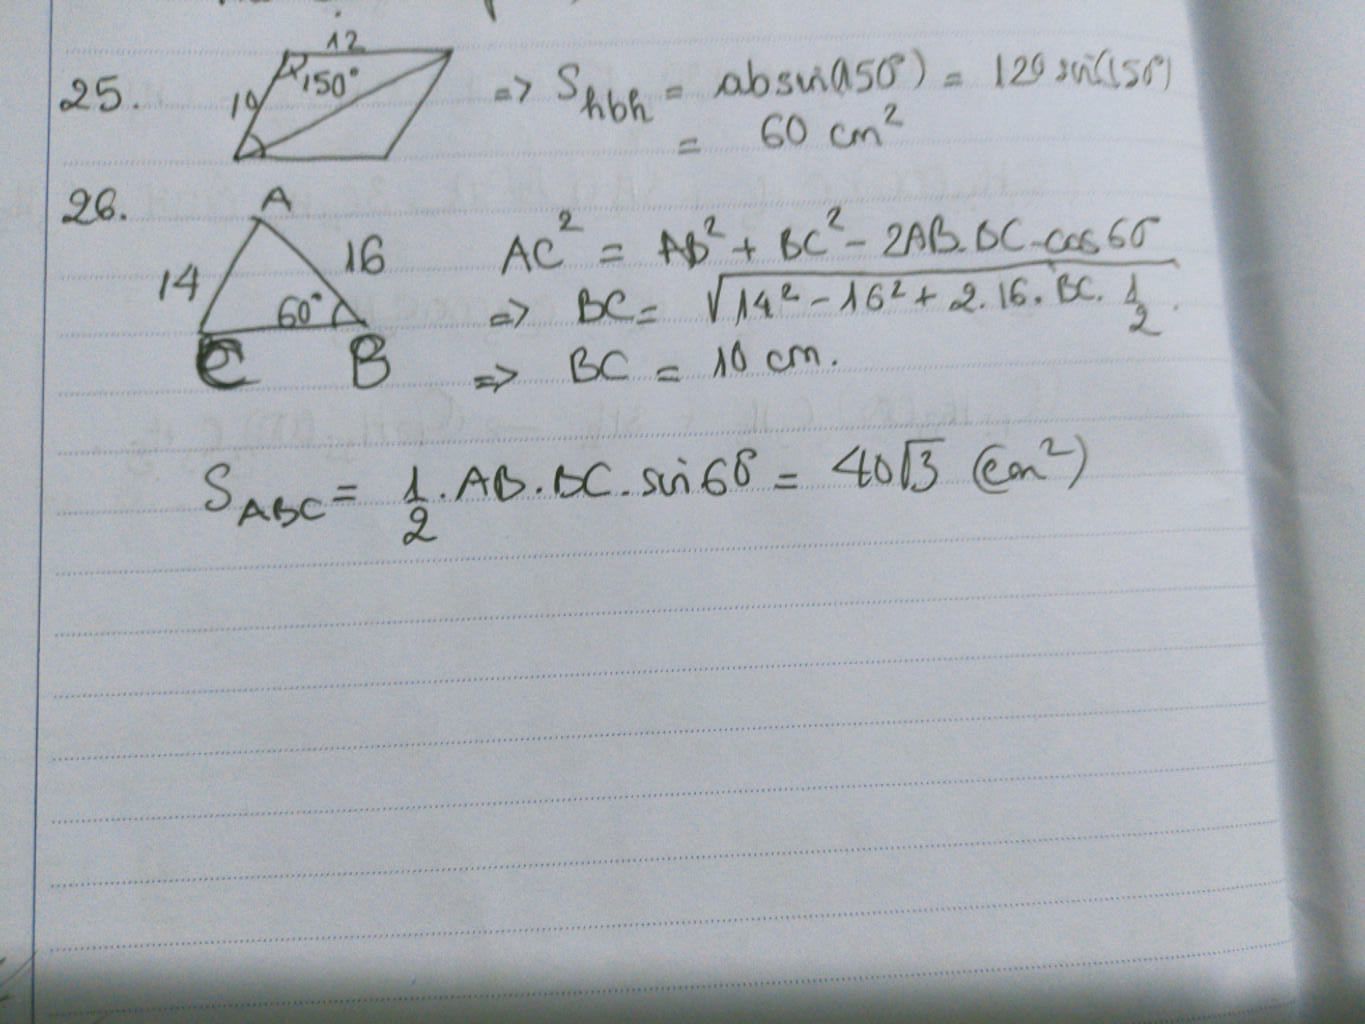 25. 12 10 150° => S hbh = absin(150°) = 120 sin(150°)
= 60 cm²
26. A
14 16 60° AC² = AB² + BC² - 2AB.BC.cos60°
=> BC = √14² - 16² + 2.16.BC.1/2.
C B => BC = 10 cm.
S ABC = 1/2.AB.BC.sin60° = 40√3 (cm²)